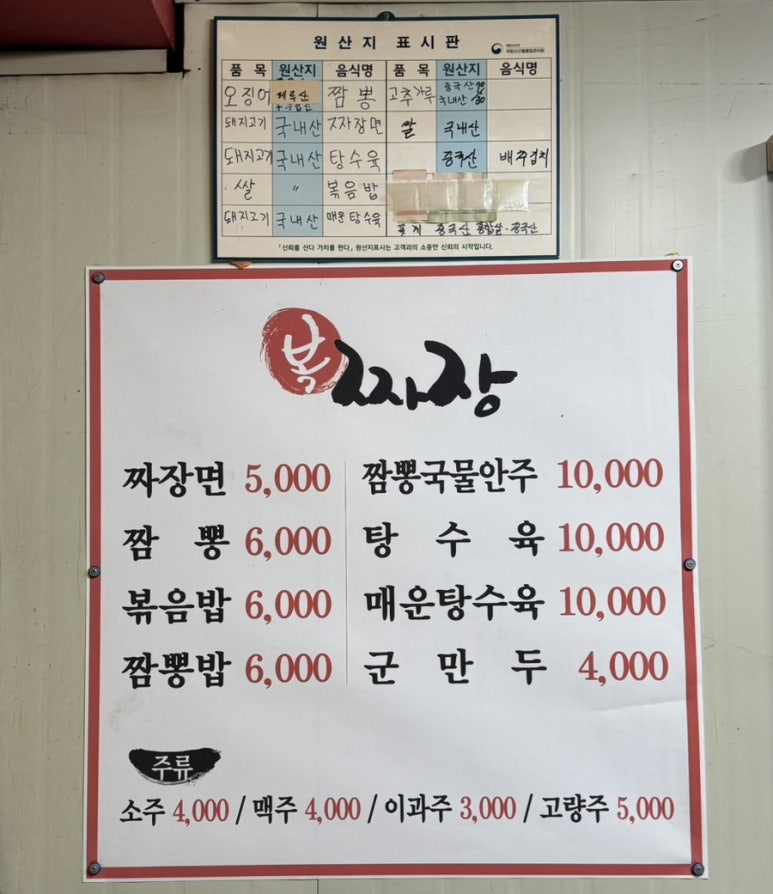 원산지 표시판
품 목 원산지 음식명 품 목 원산지 음식명
오징어 페루산 짬뽕 고추가루 중국산 70 국내산 30
돼지고기 국내산 짜장면 쌀 국내산
돼지고기 국내산 탕수육 중국산 배추김치
쌀 〃 볶음밥
돼지고기 국내산 매운탕수육 꽃게 중국산
「신뢰를 산다 가치를 판다」 원산지표시는 고객과의 소중한 신뢰의 시작입니다.
복짜장
짜장면 5,000 짬뽕국물안주 10,000
짬 뽕 6,000 탕 수 육 10,000
볶음밥 6,000 매운탕수육 10,000
짬뽕밥 6,000 군 만 두 4,000
주류
소주 4,000 / 맥주 4,000 / 이과주 3,000 / 고량주 5,000